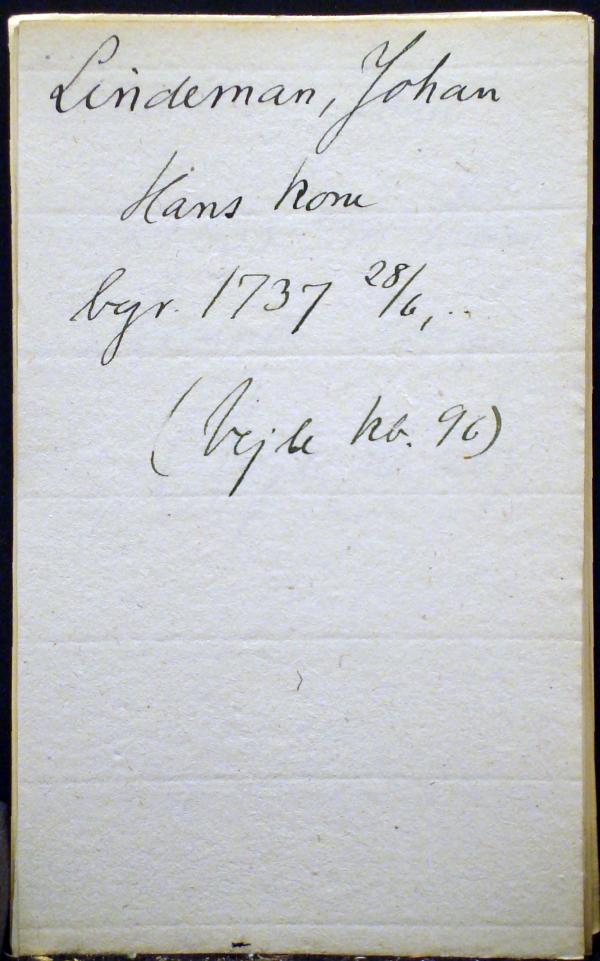 Lindeman, Johan
Hans kone
bgr. 1737 28/6, ..
(Vejle kb. 96)